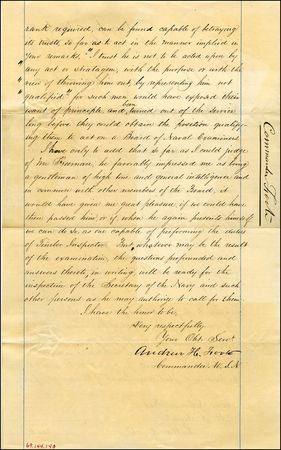 rank required, can be found capable of betraying
its trust so far as to act in the manner implied in
your remarks, "I trust he is not to be acted upon by
" any act or stratagem, with the purpose or with the
" view of throwing him out by representing him not
" qualified" for such men would have exposed their
want of principle and been turned out of the service
long before they could obtain the position qualify-
ing them to act on a Board of Naval Examiners
I have only to add that so far as I could judge
of Mr Freeman, he favorably impressed me as being
a gentleman of high tone and general intelligence, and
in common with other members of the Board, it
would have given me great pleasure, if we could have
then passed him or if when he again presents himself
we can do so, as one capable of performing the duties
of Timber Inspector. But, whatever may be the result
of the examination, the questions propounded and
answers thereto, in writing, will be ready for the
inspection of the Secretary of the Navy and such
other persons as he may authorize to call for them.
I have the honor to be,
Very respectfully
Your Obt Servt
Andrew H. Foote
Commander, U.S.N.
Commander Foote
69.144.143